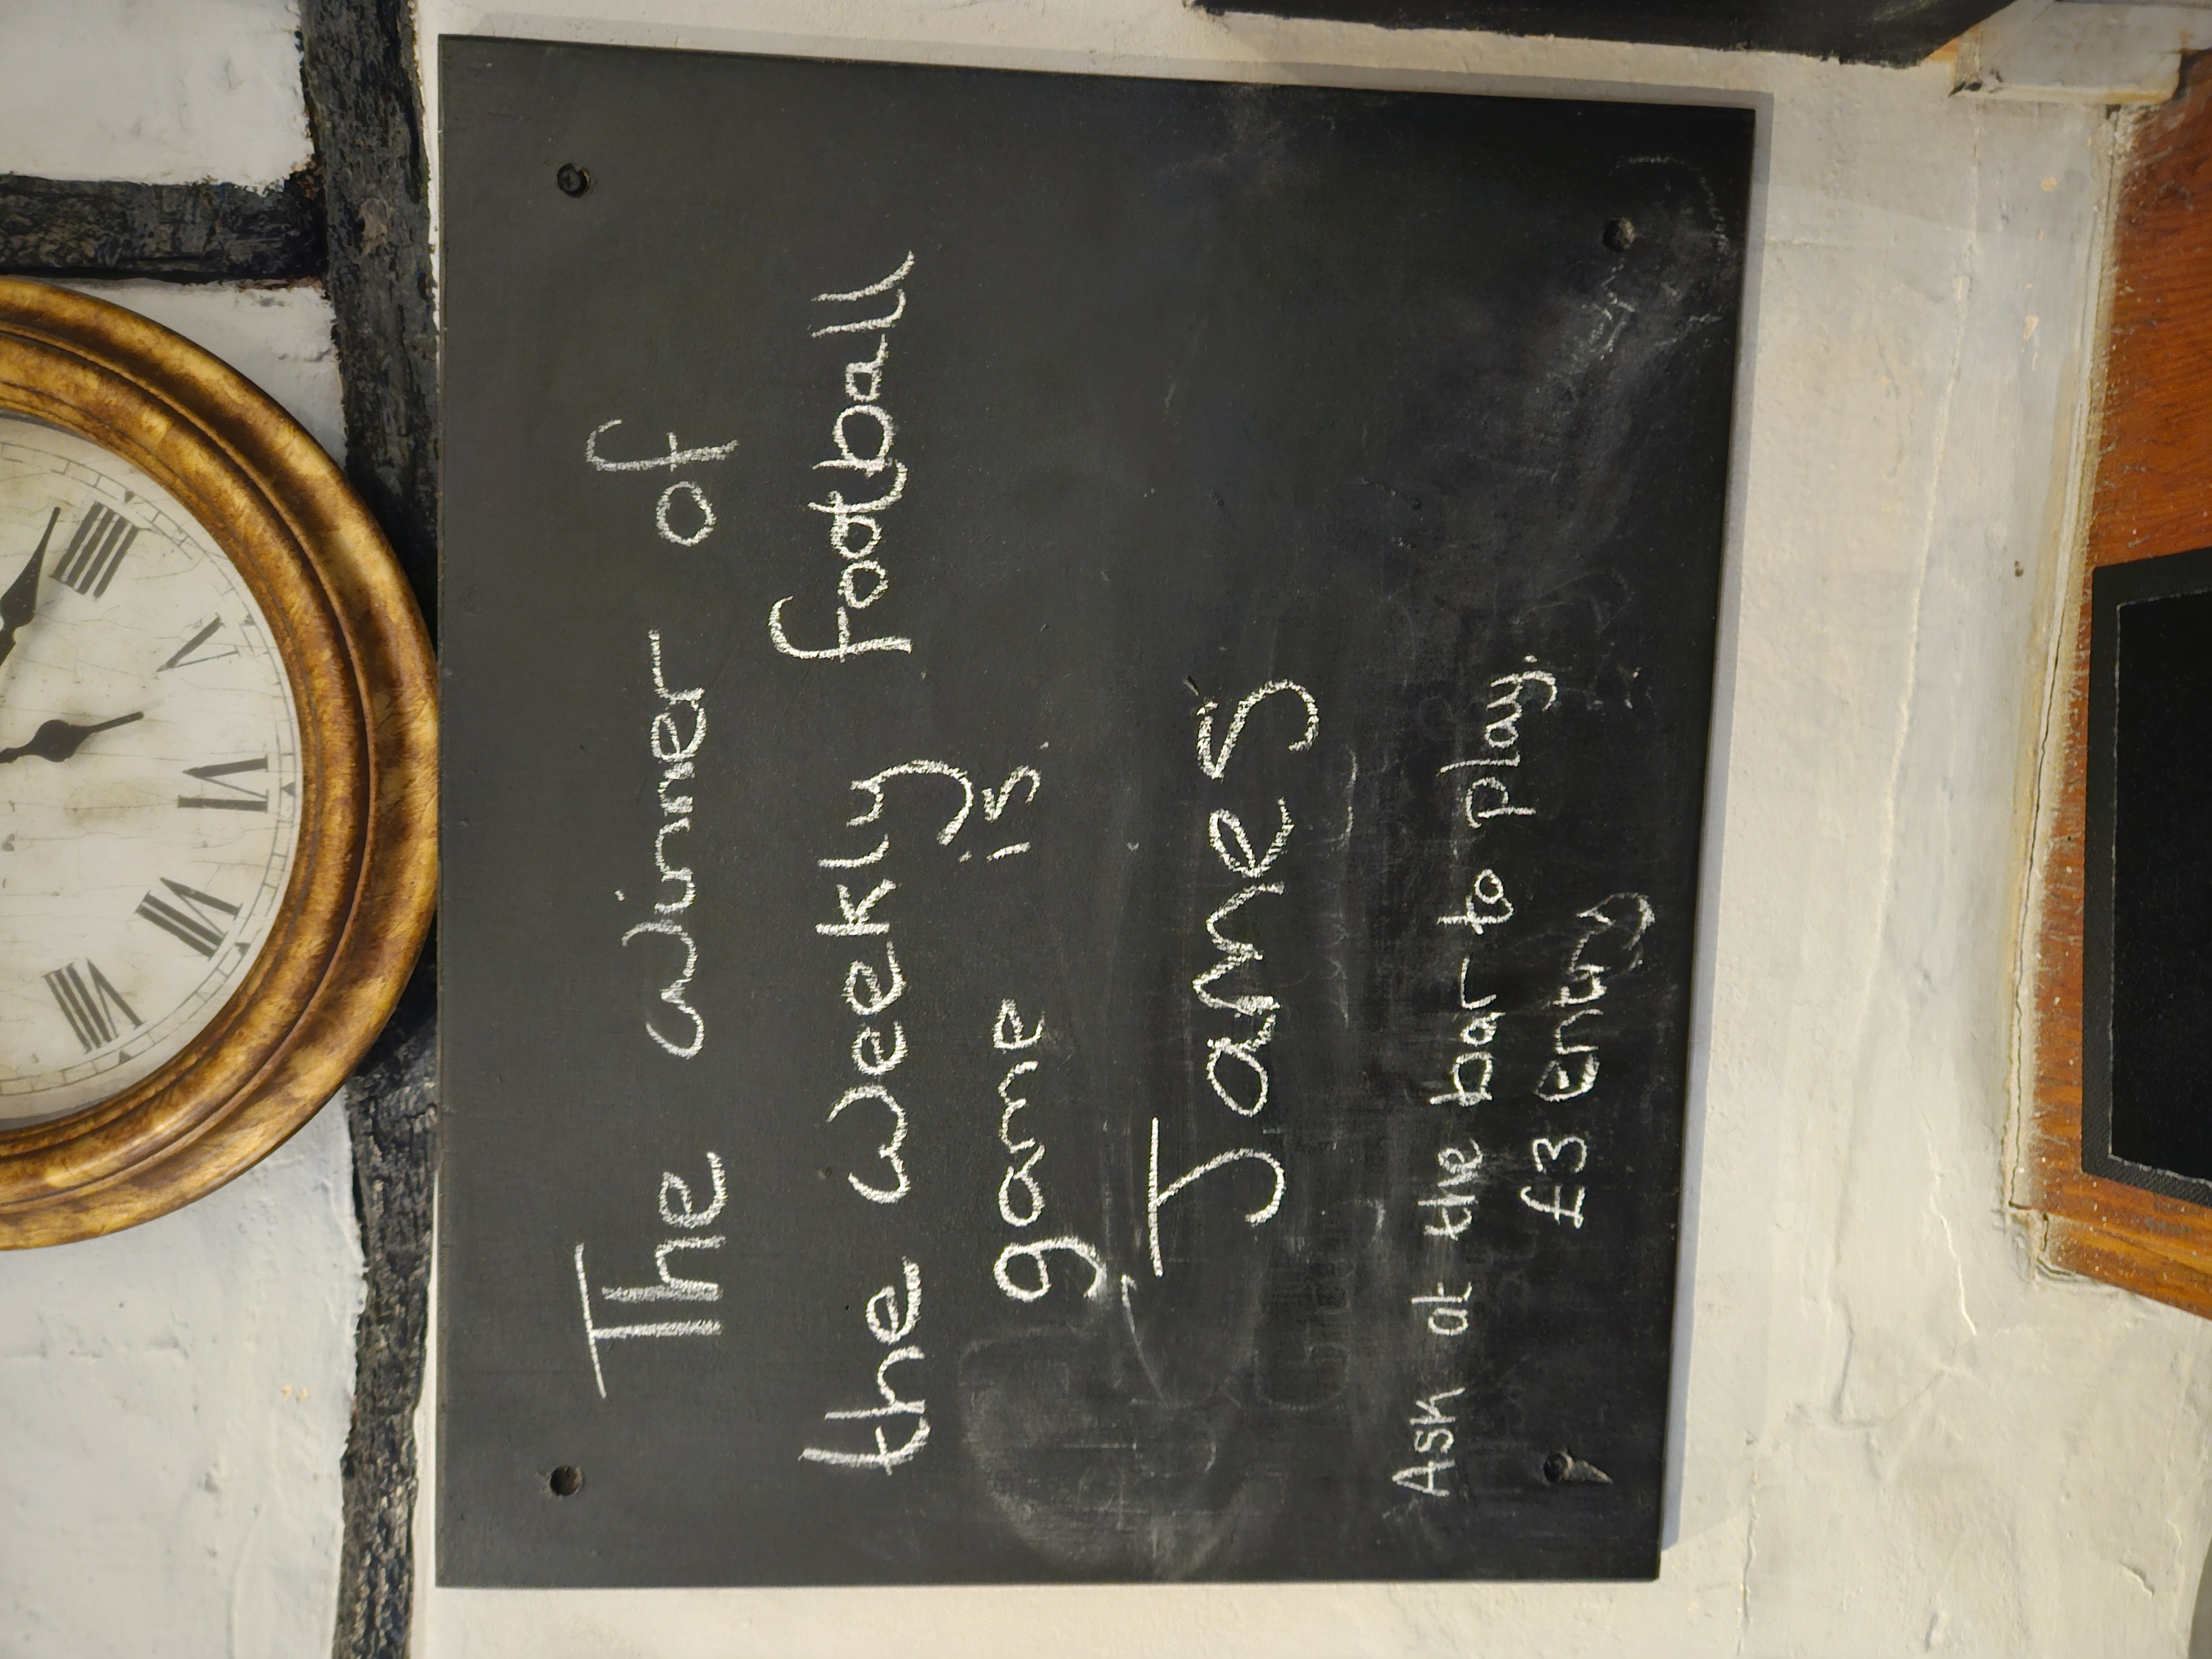 IIII
V
VI
VII
VIII
The winner of
the weekly football
game is.
James
Ask at the bar to play.
£3 entry